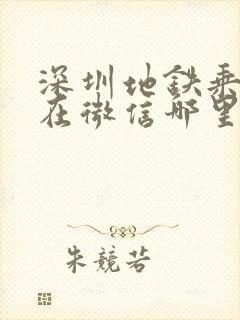 深圳地铁乘
在微信哪里
朱競若